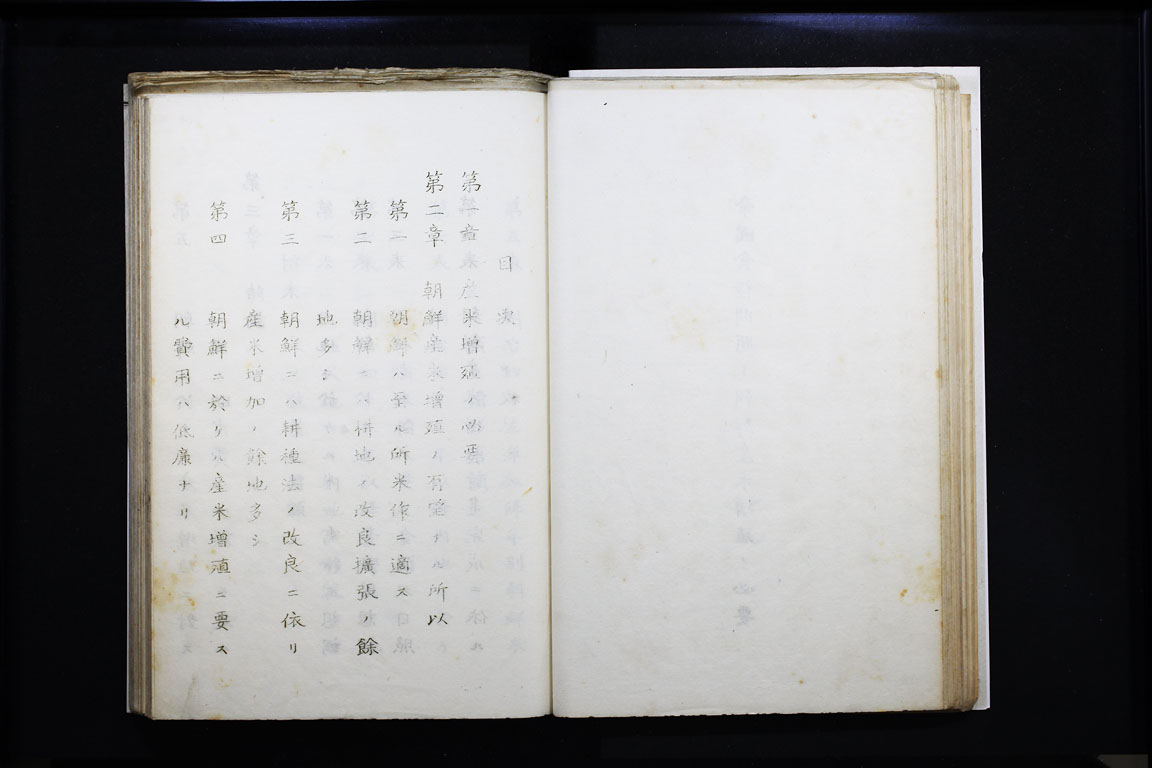 目次
第一章 産米増殖ノ必要
第二章 朝鮮産米増殖ノ有望ナル所以
第一 朝鮮ハ至ル所米作ニ適ス
第二 朝鮮ニハ耕地ノ改良擴張ノ餘
地多シ
第三 朝鮮ニハ耕種法ノ改良ニ依リ
産米増加ノ餘地多シ
第四 朝鮮ニ於ケル産米増殖ニ要ス
ル費用ハ低廉ナリ